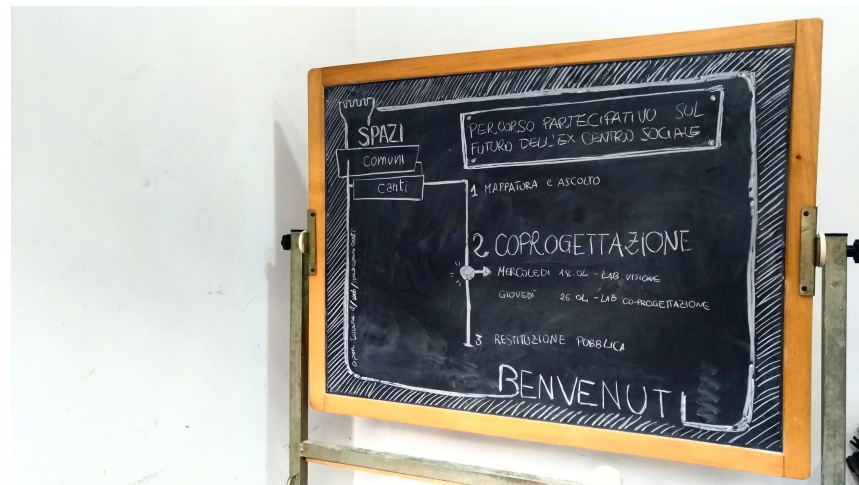 SPAZI
comuni
canti
PERCORSO PARTECIPATIVO SUL
FUTURO DELL'EX CENTRO SOCIALE
1 MAPPATURA e ASCOLTO
2 COPROGETTAZIONE
MERCOLEDÌ 18.04 - LAB VISIONE
GIOVEDÌ 26.04 - LAB CO-PROGETTAZIONE
3 RESTITUZIONE PUBBLICA
BENVENUTI